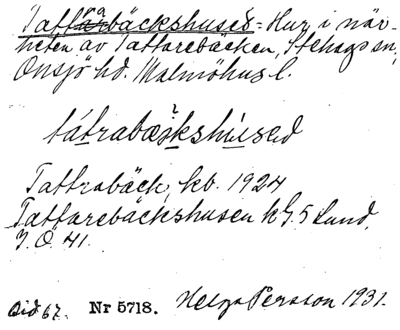 Tattrabäckshused = Hus i när-
heten av Tattarebäcken, Stehags sn,
Onsjö hd. Malmöhus l.
tátrabækshúsed
Tattrabäck, kb. 1924
Tattarebäckshusen kG. 5 Lund,
J.Ö. 41.
Bid 67. Nr 5718. Helge Persson 1931.